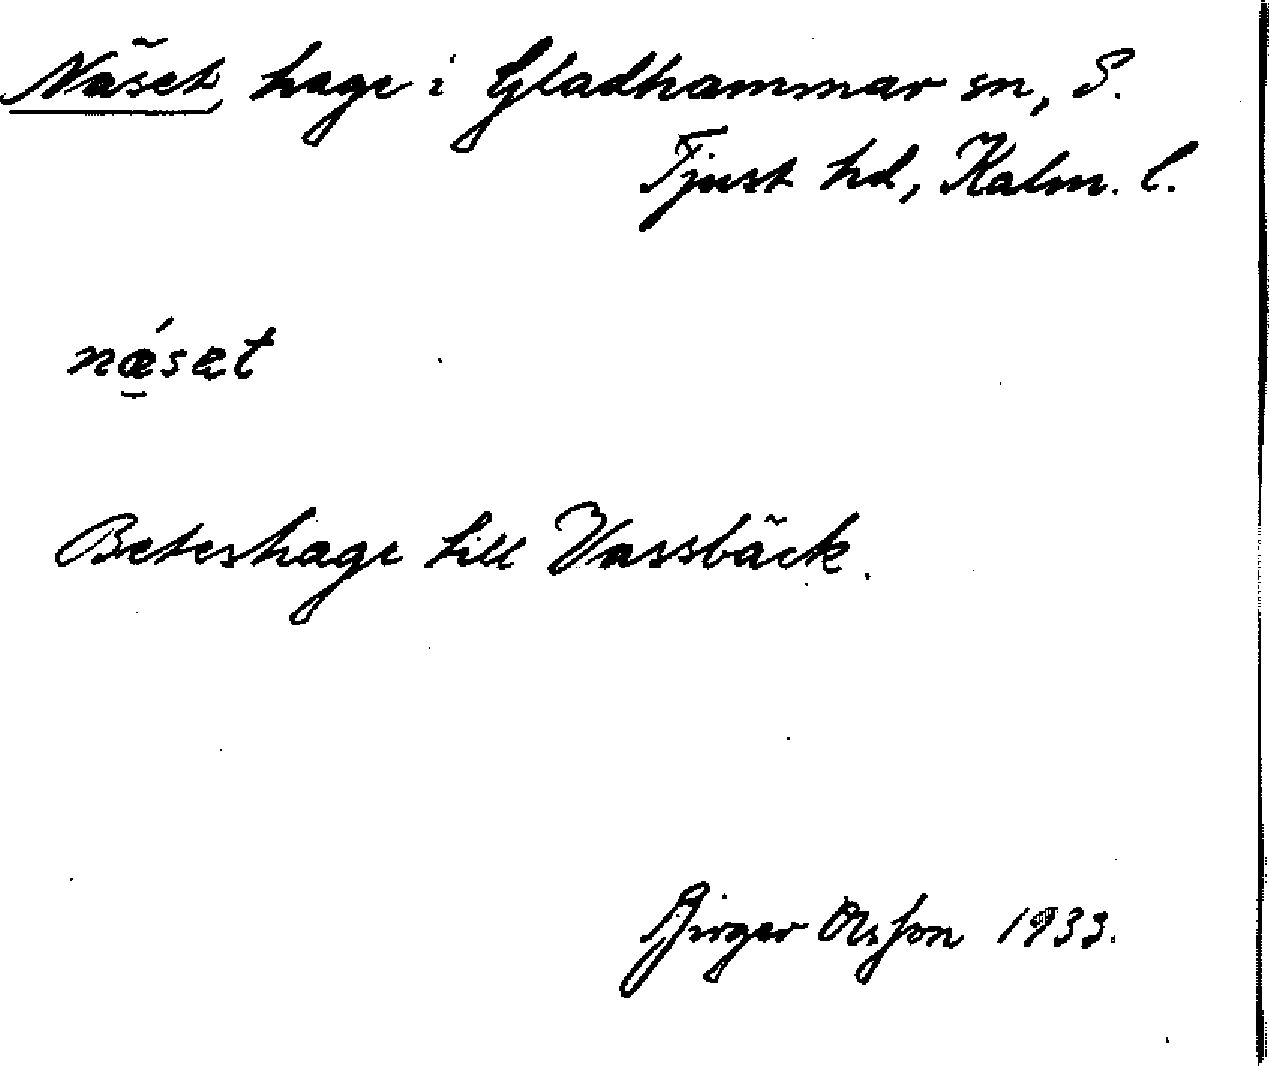 Näset, hage i Gladhammar sn, S.
Tjust hd, Kalm. l.
nǽ̠sæt
Beteshage till Vassbäck.
Birger Olsson 1933.